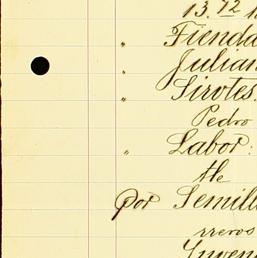 13.72
" Tienda
" Julian
" Sirotes.
Pedro
" Labor:
the
por Semill
rreros
Juven